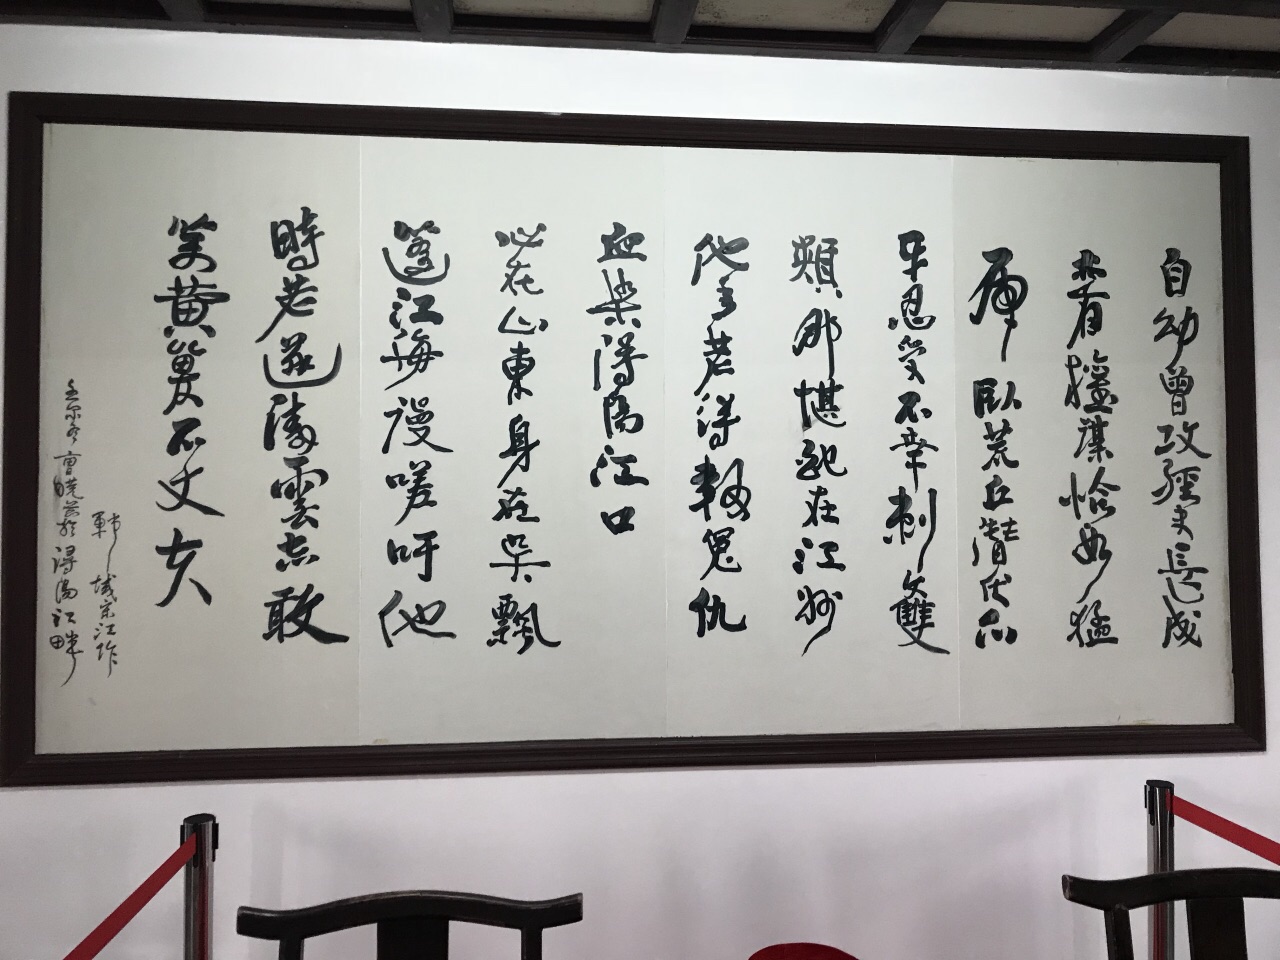 自幼曾攻經史長成
亦有權謀恰如猛
虎臥荒丘潛伏爪
牙忍受不幸刺雙
頰那堪配在江州
他年若得報冤仇
血染潯陽江口
心在山東身在吳飄
蓬江海謾嗟吁他
時若遂凌雲志敢
笑黃巢不丈夫
鄆城宋江作
於潯陽江畔